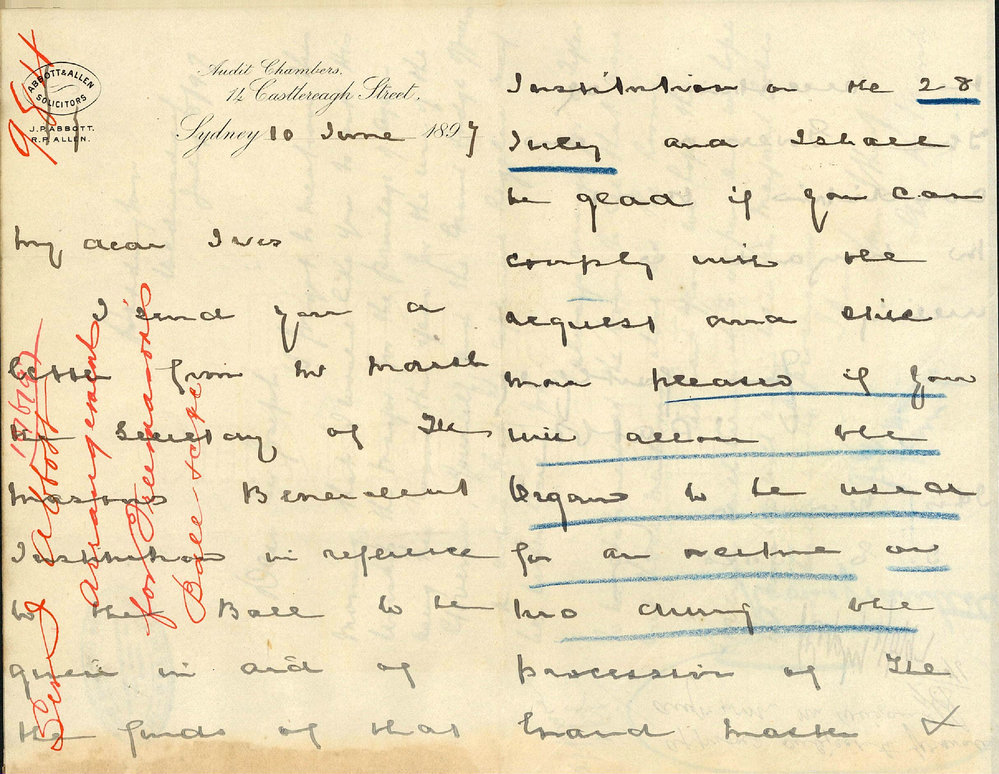 9514
ABBOTT & ALLEN
SOLICITORS
J.P. ABBOTT.
R.P. ALLEN.
Audit Chambers,
14 Castlereagh Street,
Sydney 10 June 1897
My dear Ives
I send you a
letter from Mr
the Secretary of the
Masonic Benevolent
Institution in reference
to the Ball to be
given in aid of
the funds of that
Institution on the 28
July and I shall
be glad if you can
comply with the
request and still
more pleased if you
will allow the
Organ to be used
for an overture or
two during the
procession of the
Grand Master
Sir J Abbott
Arrangement
for Freemasons
Ball &c